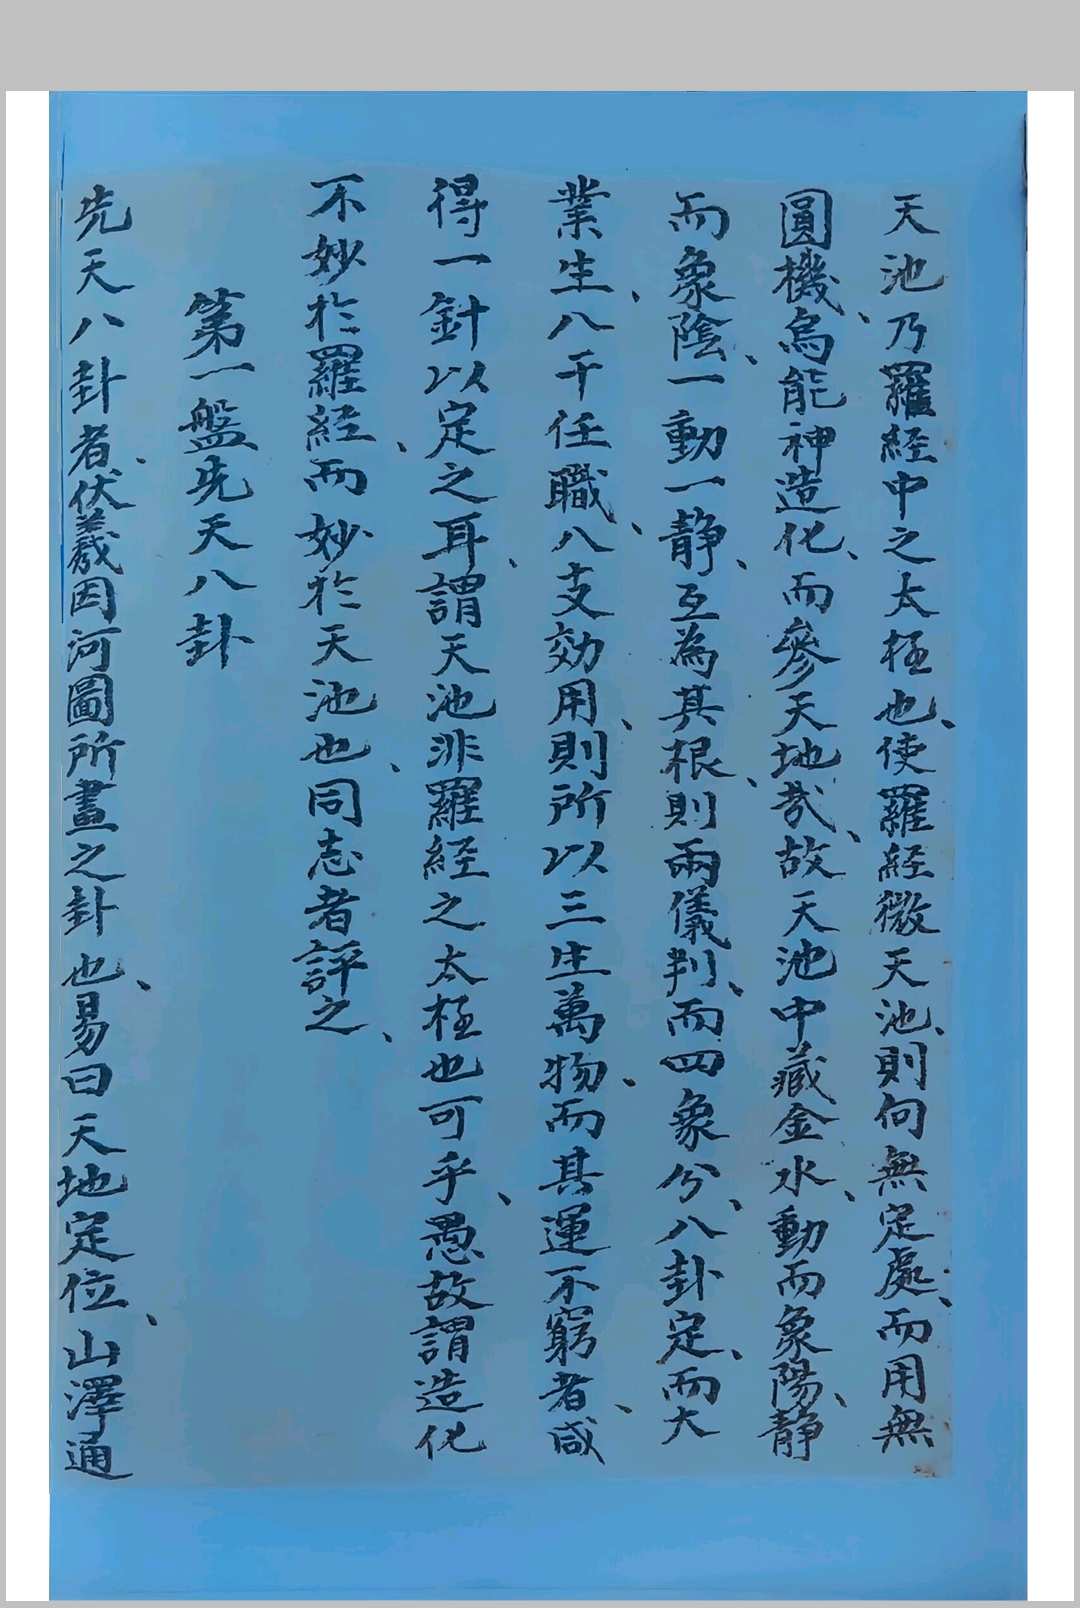 天池乃羅経中之太極也、使羅経微天池、則向無定處、而用無
圓機、烏能神造化、而參天地哉、故天池中藏金水、動而象陽、静
而象陰、一動一静、互為其根、則兩儀判、而四象分、八卦定、而大
業生、八干任職、八支効用、則所以三生萬物、而其運不窮者、咸
得一針以定之耳、謂天池非羅経之太極也可乎、愚故謂造化
不妙於羅経、而妙於天池也、同志者評之、
第一盤先天八卦
先天八卦者、伏羲因河圖所畫之卦也、易曰天地定位、山澤通